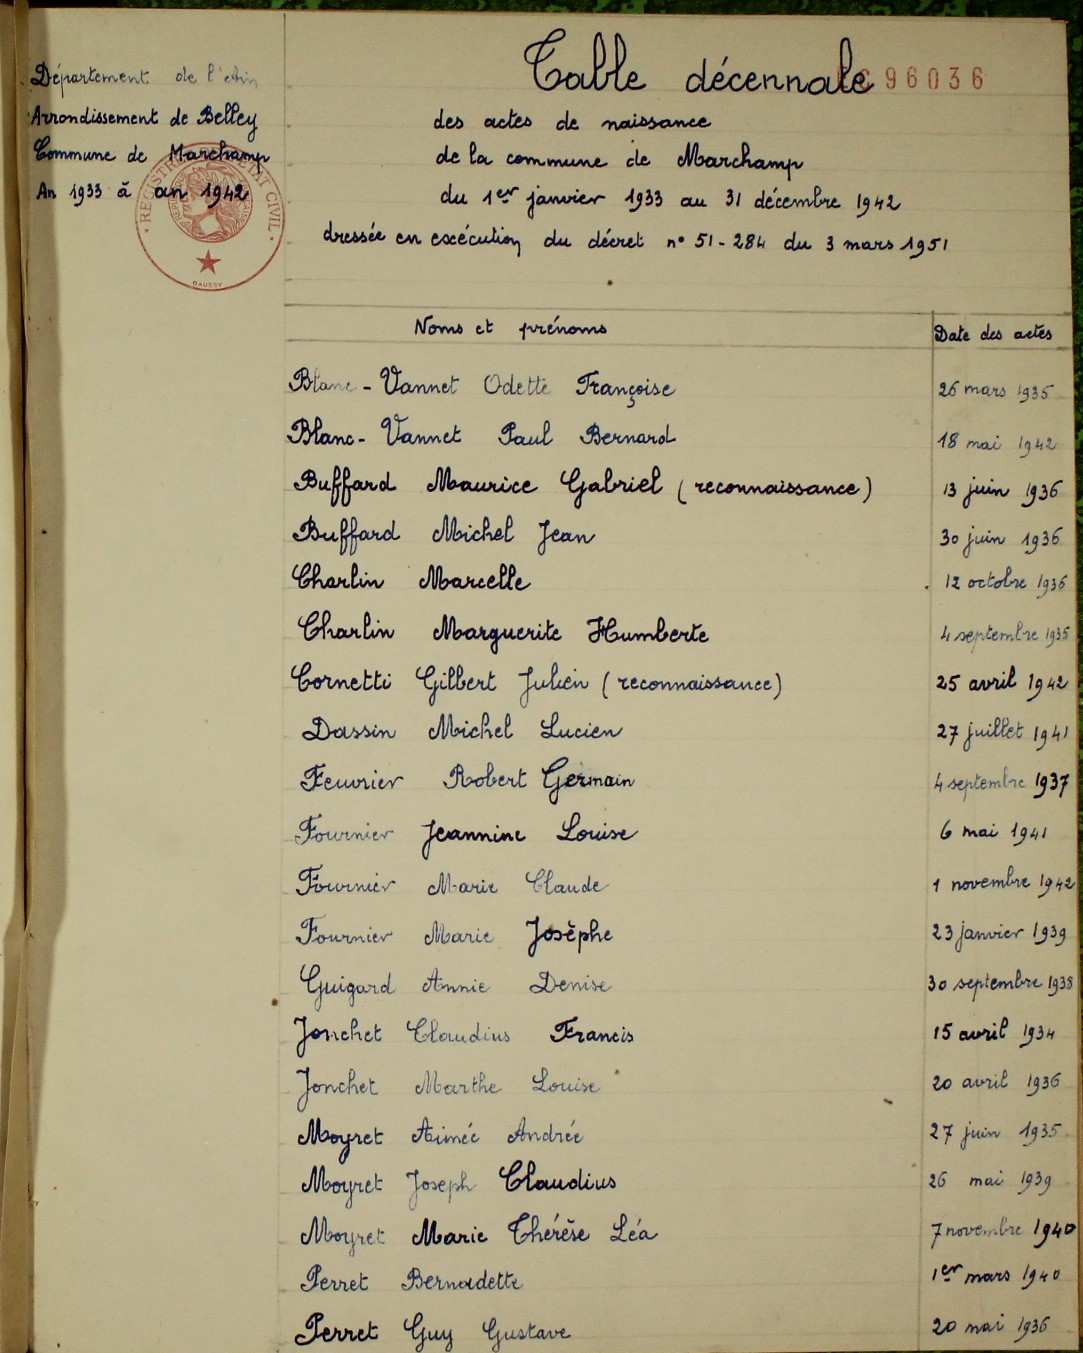 Département de l'Ain
Arrondissement de Belley
Commune de Marchamp
An 1933 à an 1942
REGISTRES DE L'ETAT CIVIL
DAUSSY
Table décennale
96036
des actes de naissance
de la commune de Marchamp
du 1er janvier 1933 au 31 décembre 1942
dressée en exécution du décret n° 51-284 du 3 mars 1951
Noms et prénoms Date des actes
Blanc-Vannet Odette Françoise 26 mars 1935
Blanc-Vannet Paul Bernard 18 mai 1942
Buffard Maurice Gabriel (reconnaissance) 13 juin 1936
Buffard Michel Jean 30 juin 1936
Charlin Marcelle 12 octobre 1936
Charlin Marguerite Humberte 4 septembre 1935
Cornetti Gilbert Julien (reconnaissance) 25 avril 1942
Dassin Michel Lucien 27 juillet 1941
Feuvrier Robert Germain 4 septembre 1937
Fournier Jeannine Louise 6 mai 1941
Fournier Marie Claude 1 novembre 1942
Fournier Marie Josèphe 23 janvier 1939
Guigard Annie Denise 30 septembre 1938
Jonchet Claudius Francis 15 avril 1934
Jonchet Marthe Louise 20 avril 1936
Moyret Aimée Andrée 27 juin 1935
Moyret Joseph Claudius 26 mai 1939
Moyret Marie Thérèse Léa 7 novembre 1940
Perret Bernadette 1er mars 1940
Perret Guy Gustave 20 mai 1936